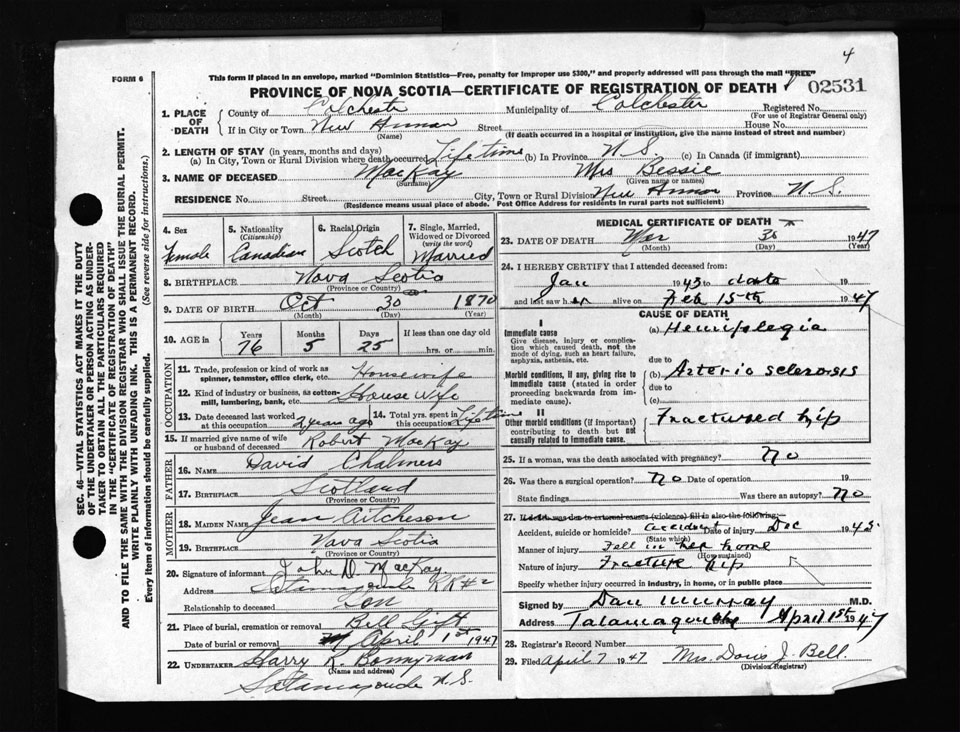 4
FORM 6
This form if placed in an envelope, marked "Dominion Statistics—Free, penalty for improper use $300," and properly addressed will pass through the mail "FREE"
PROVINCE OF NOVA SCOTIA—CERTIFICATE OF REGISTRATION OF DEATH 02531
1. PLACE OF DEATH
County of Colchester Municipality of Colchester Registered No.
(For use of Registrar General only)
If in City or Town New Annan Street House No.
(Name) (If death occurred in a hospital or institution, give the name instead of street and number)
2. LENGTH OF STAY (in years, months and days)
(a) In City, Town or Rural Division where death occurred Lifetime (b) In Province N S. (c) In Canada (if immigrant)
3. NAME OF DECEASED MacKay Mrs Bessie
(Surname) (Given name or names)
RESIDENCE No. Street City, Town or Rural Division New Annan Province N. S.
(Residence means usual place of abode. Post Office Address for residents in rural parts not sufficient)
4. Sex Female
5. Nationality (Citizenship) Canadian
6. Racial Origin Scotch
7. Single, Married, Widowed or Divorced (write the word) Married
8. BIRTHPLACE Nova Scotia
(Province or Country)
9. DATE OF BIRTH Oct 30 1870
(Month) (Day) (Year)
10. AGE in Years Months Days If less than one day
76 5 25 hrs. or min.
OCCUPATION
11. Trade, profession or kind of work as spinner, teamster, office clerk, etc. Housewife
12. Kind of industry or business, as cotton-mill, lumbering, bank, etc. House Wife
13. Date deceased last worked at this occupation 2 years ago
14. Total yrs. spent in this occupation Lifetime
15. If married give name of wife or husband of deceased Robert MacKay
FATHER
16. Name David Chalmers
17. Birthplace Scotland
(Province or Country)
MOTHER
18. Maiden Name Jean Aitcheson
19. Birthplace Nova Scotia
(Province or Country)
20. Signature of informant John D. MacKay
Address Tatamagouche RR#2
Relationship to deceased Son
21. Place of burial, cremation or removal Bell Gift
Date of burial or removal April 1st 1947
22. UNDERTAKER Harry R. Bonnyman
(Name and address)
Tatamagouche N.S.
MEDICAL CERTIFICATE OF DEATH
23. DATE OF DEATH Mar 30 1947
(Month) (Day) (Year)
24. I HEREBY CERTIFY that I attended deceased from:
Jan 1945 to date 19
and last saw her alive on Feb 15th 1947
CAUSE OF DEATH
I
Immediate cause
Give disease, injury or complication which caused death, not the mode of dying, such as heart failure, asphyxia, asthenia, etc.
(a) Hemiplegia
due to
Morbid conditions, if any, giving rise to immediate cause (stated in order proceeding backwards from immediate cause).
(b) Arterio sclerosis
due to
(c)
II
Other morbid conditions (if important) contributing to death but not causally related to immediate cause.
Fractured hip
25. If a woman, was the death associated with pregnancy? No
26. Was there a surgical operation? No Date of operation 19
State findings Was there an autopsy? No
27. If death was due to external causes (violence) fill in also the following:
Accident, suicide or homicide? accident Date of injury Dec 1945
(State which)
Manner of injury Fell in her home
(How sustained)
Nature of injury Fracture hip
Specify whether injury occurred in industry, in home, or in public place
Signed by Dan Murray M.D.
Address Tatamagouche April 1st 1947
28. Registrar's Record Number
29. Filed April 7 1947 Mrs. Doris J. Bell.
(Division Registrar)
SEC. 46—VITAL STATISTICS ACT MAKES IT THE DUTY OF THE UNDERTAKER OR PERSON ACTING AS UNDERTAKER TO OBTAIN ALL THE PARTICULARS REQUIRED IN THE "CERTIFICATE OF REGISTRATION OF DEATH" AND TO FILE THE SAME WITH THE DIVISION REGISTRAR WHO SHALL ISSUE THE BURIAL PERMIT.
WRITE PLAINLY WITH UNFADING INK. THIS IS A PERMANENT RECORD.
Every item of information should be carefully supplied. (See reverse side for instructions.)